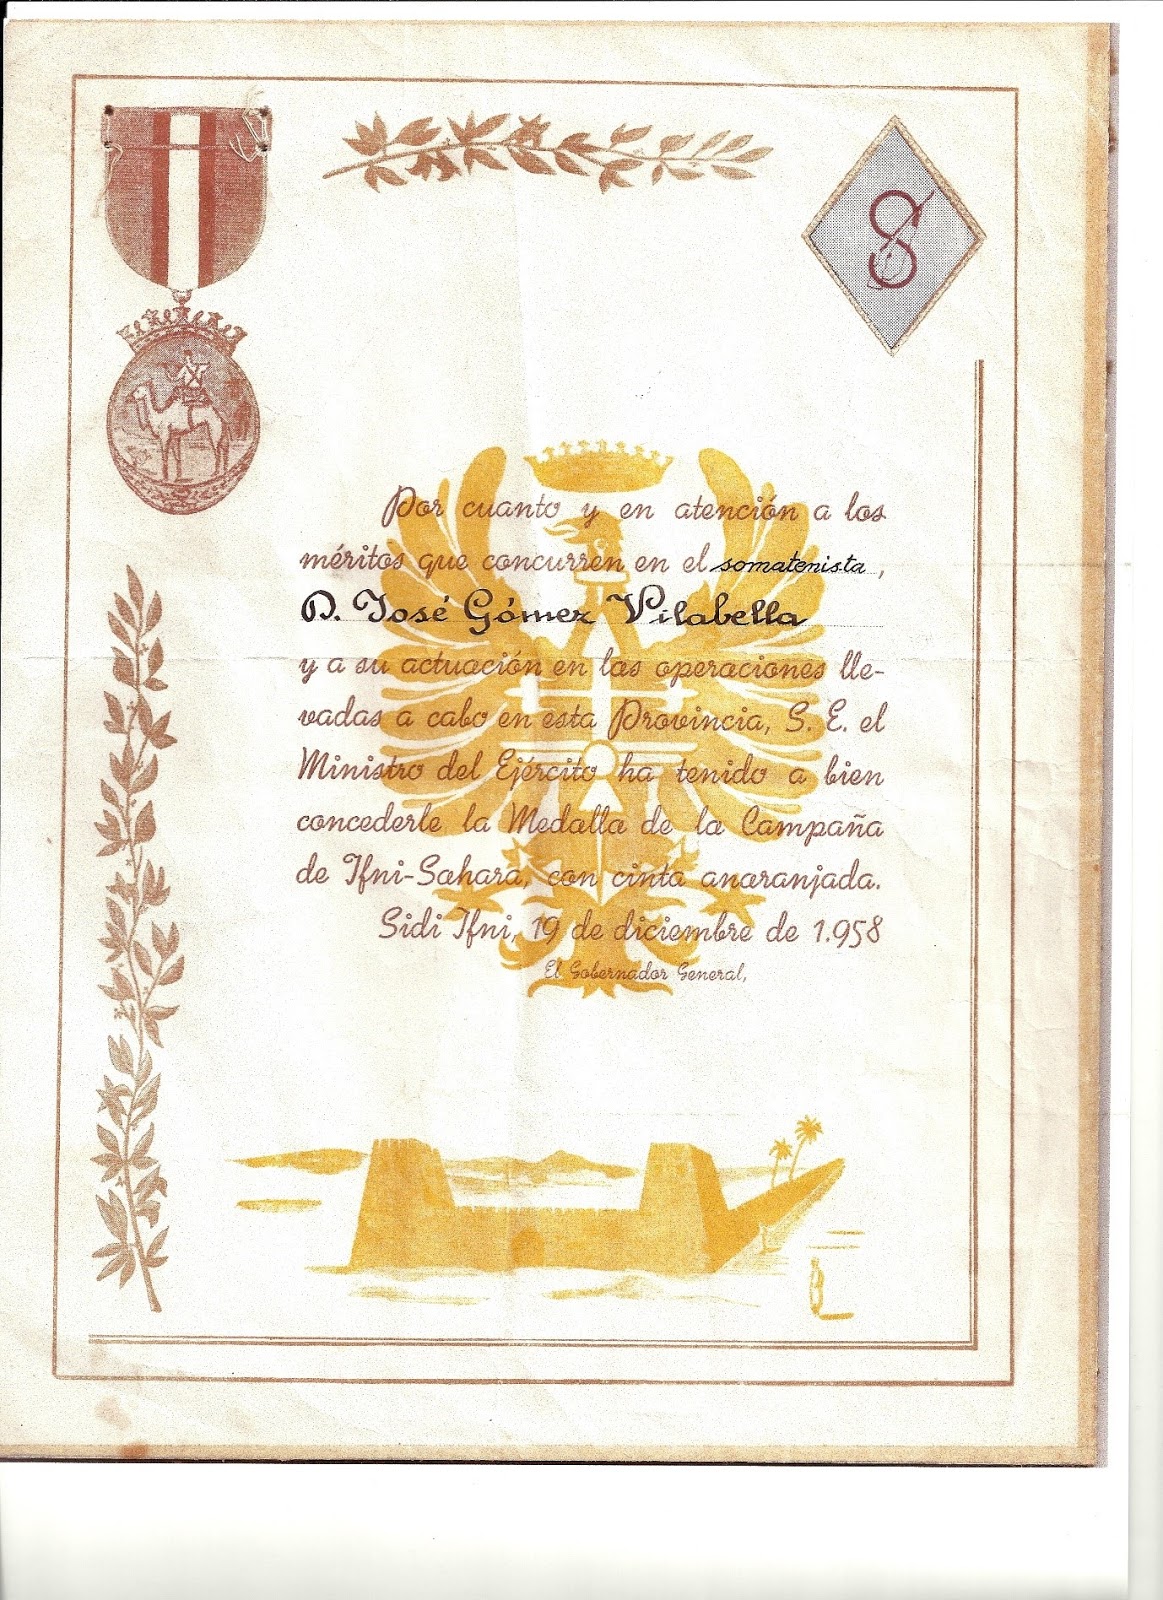 S
Por cuanto y en atención a los
méritos que concurren en el somatenista,
D. José Gómez Vilabella
y a su actuación en las operaciones lle-
vadas a cabo en esta Provincia, S. E. el
Ministro del Ejército ha tenido a bien
concederle la Medalla de la Campaña
de Ifni-Sahara, con cinta anaranjada.
Sidi Ifni, 19 de diciembre de 1.958
El Gobernador General,